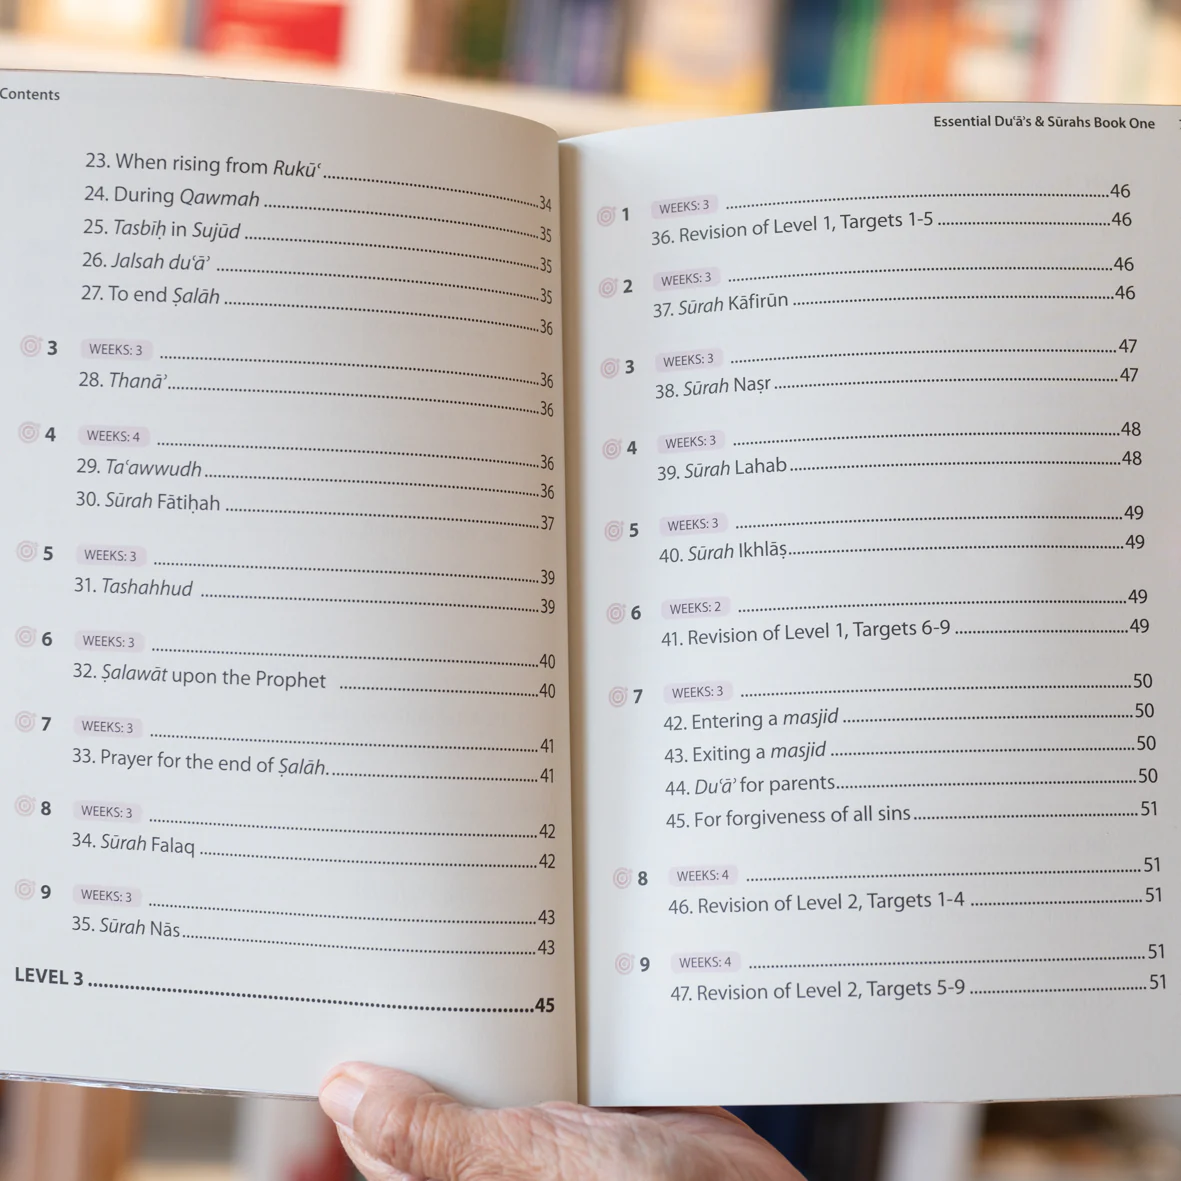 Contents
23. When rising from Rukūʿ ..... 34
24. During Qawmah ..... 35
25. Tasbiḥ in Sujūd ..... 35
26. Jalsah duʿāʾ ..... 35
27. To end Ṣalāh ..... 36
3 WEEKS: 3 ..... 36
28. Thanāʾ ..... 36
4 WEEKS: 4 ..... 36
29. Taʿawwudh ..... 36
30. Sūrah Fātiḥah ..... 37
5 WEEKS: 3 ..... 39
31. Tashahhud ..... 39
6 WEEKS: 3 ..... 40
32. Ṣalawāt upon the Prophet ..... 40
7 WEEKS: 3 ..... 41
33. Prayer for the end of Ṣalāh. ..... 41
8 WEEKS: 3 ..... 42
34. Sūrah Falaq ..... 42
9 WEEKS: 3 ..... 43
35. Sūrah Nās ..... 43
LEVEL 3 ..... 45
Essential Duʿāʾs & Sūrahs Book One
1 WEEKS: 3 ..... 46
36. Revision of Level 1, Targets 1-5 ..... 46
2 WEEKS: 3 ..... 46
37. Sūrah Kāfirūn ..... 46
3 WEEKS: 3 ..... 47
38. Sūrah Naṣr ..... 47
4 WEEKS: 3 ..... 48
39. Sūrah Lahab ..... 48
5 WEEKS: 3 ..... 49
40. Sūrah Ikhlāṣ ..... 49
6 WEEKS: 2 ..... 49
41. Revision of Level 1, Targets 6-9 ..... 49
7 WEEKS: 3 ..... 50
42. Entering a masjid ..... 50
43. Exiting a masjid ..... 50
44. Duʿāʾ for parents ..... 50
45. For forgiveness of all sins ..... 51
8 WEEKS: 4 ..... 51
46. Revision of Level 2, Targets 1-4 ..... 51
9 WEEKS: 4 ..... 51
47. Revision of Level 2, Targets 5-9 ..... 51